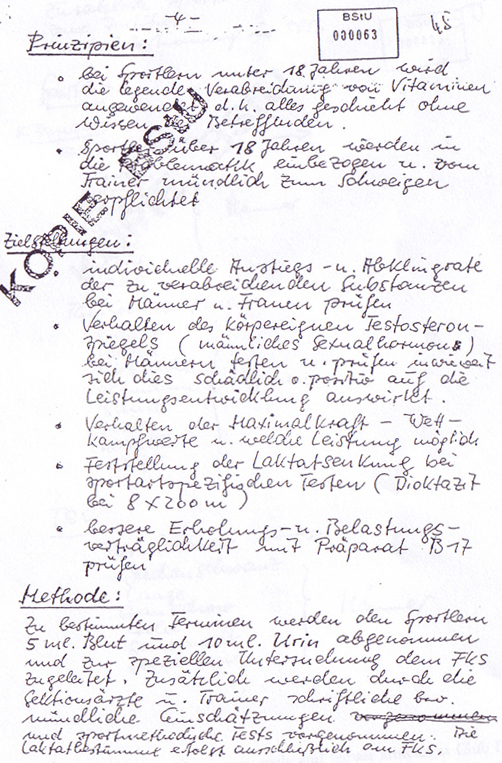 - 4 -
BStU
000063
48
Prinzipien:
• bei Sportlern unter 18 Jahren wird
die legende Verabreichung von Vitaminen
angewendet d.h. alles geschieht ohne
Wissen des Betreffenden.
• Sportler über 18 Jahren werden in
die Problematik einbezogen u. vom
Trainer mündlich zum Schweigen
verpflichtet
KOPIE BStU
Zielstellungen:
• individuelle Anstiegs- u. Abklingrate
der zu verabreichenden Substanzen
bei Männer u. Frauen prüfen
• Verhalten des körpereignen Testosteron-
spiegels (männliches Sexualhormons)
bei Männern testen u. prüfen inwieweit
sich dies schädlich o. positiv auf die
Leistungsentwicklung auswirkt.
• Verhalten der Maximalkraft - Wett-
kampfwerte u. welche Leistung möglich
• Feststellung der Laktatsenkung bei
sportartspezifischen Testen (Dioktazit
bei 8 x 200 m)
• bessere Erholungs- u. Belastungs-
verträglichkeit mit Präparat B17
prüfen
Methode:
Zu bestimmten Terminen werden den Sportlern
5 ml. Blut und 10 ml. Urin abgenommen
und zur speziellen Untersuchung dem FKS
zugeleitet. Zusätzlich werden durch die
Sektionsärzte u. Trainer schriftliche bzw.
mündliche Einschätzungen vorgenommen
und sportmethodische Tests vorgenommen. Die
Laktatbestimmung erfolgt ausschließlich am FKS.